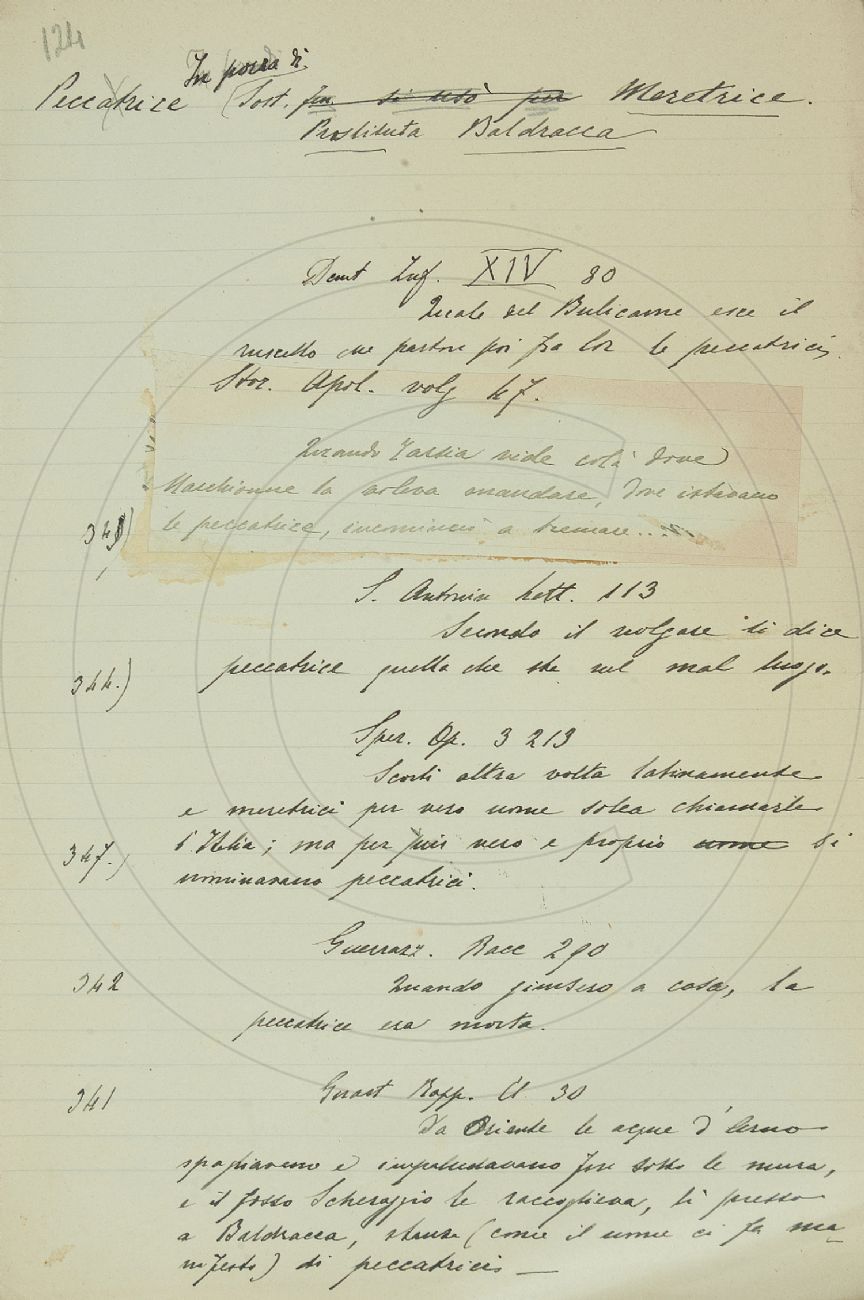 124
In forza di
Peccatrice (Sost. fm. si usò per Meretrice.
Prostituta Baldracca
Dant Inf. XIV 80
Quale del Bulicame esce il
ruscello che parton poi fra lor le peccatrici
Stor. Apol. volg 47.
Quando Tarsia vide colà dove
Marchionne la voleva mandare, dove istavano
le peccatrice, incominciò a tremare...
345)
S. Antonin Lett. 113
Secondo il volgare si dice
peccatrice quella che sta nel mal luogo.
344.)
Sper. Op. 3 213
Scorti altra volta latinamente
e meretrici per vero nome solea chiamarle
l'Italia; ma per più vero e proprio nome si
347.)
nominavano peccatrici.
Guerrazz. Racc 290
342
Quando giunsero a casa, la
peccatrice era morta.
341
Guast Rapp. 30
Da Oriente le acque d'Arno
spagliavano e impaludavano fin sotto le mura,
e il fosso Scheraggio le raccoglieva, lì presso
a Baldracca, stanza (come il nome ci fa ma-
nifesto) di peccatrici —